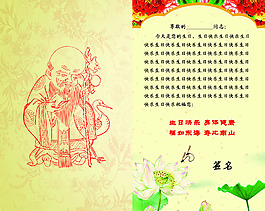 尊敬的________同志:
今天是您的生日，生日快乐生日快乐生日
快乐生日快乐生日快乐生日快乐生日快乐生日
快乐生日快乐生日快乐生日快乐生日快乐生日
快乐生日快乐生日快乐生日快乐生日快乐生日
快乐生日快乐生日快乐生日快乐生日快乐生日
快乐生日快乐生日快乐祝福您!
生日快乐 身体健康
福如东海 寿比南山
签名